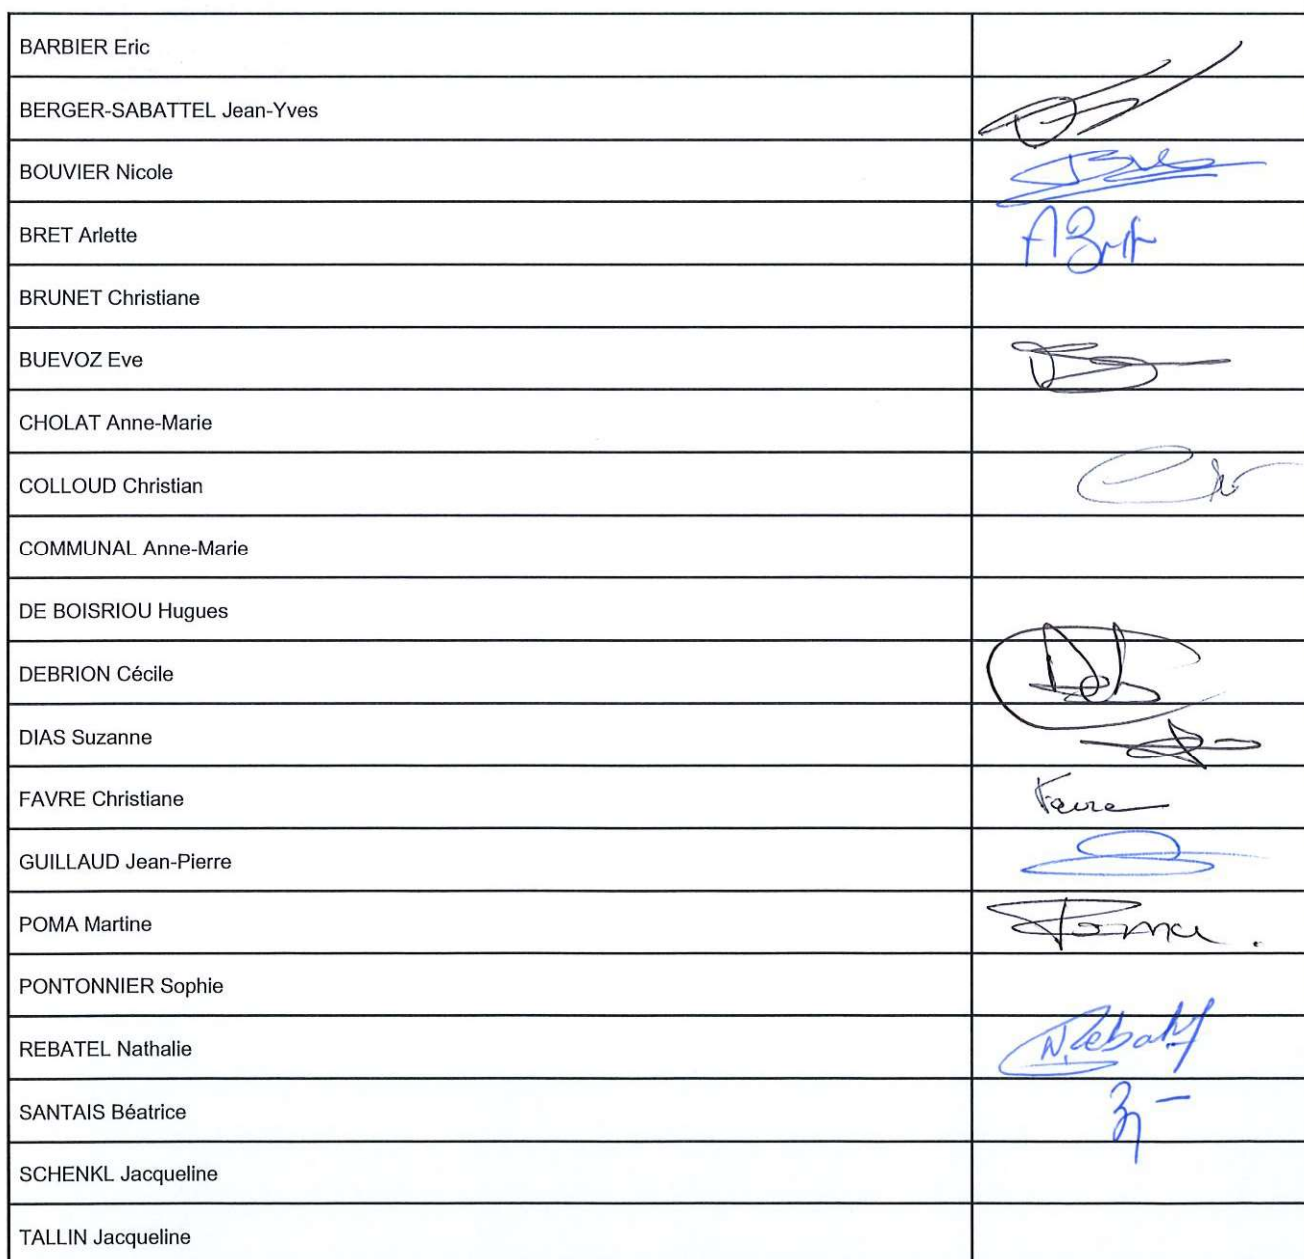 BARBIER Eric
BERGER-SABATTEL Jean-Yves
BOUVIER Nicole
BRET Arlette
BRUNET Christiane
BUEVOZ Eve
CHOLAT Anne-Marie
COLLOUD Christian
COMMUNAL Anne-Marie
DE BOISRIOU Hugues
DEBRION Cécile
DIAS Suzanne
FAVRE Christiane
Favre
GUILLAUD Jean-Pierre
POMA Martine
Poma.
PONTONNIER Sophie
REBATEL Nathalie
N.Rebatel
SANTAIS Béatrice
SCHENKL Jacqueline
TALLIN Jacqueline